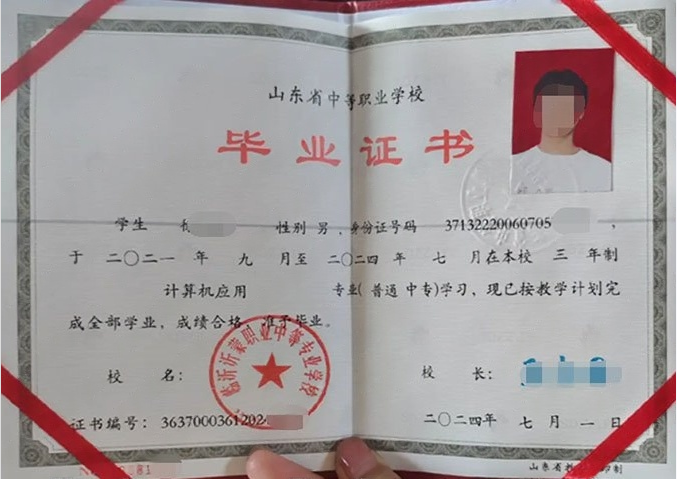 山东省中等职业学校
毕业证书
学生 性别 男，身份证号码 37132220060705 ，
于 二〇二一 年 九 月至 二〇二四 年 七 月在本校 三 年制
计算机应用 专业(普通中专)学习，现已按教学计划完
成全部学业，成绩合格，准予毕业。
临沂沂蒙职业中等专业学校
校 名： 校 长：
证书编号：3637000361202
二〇二四年 七 月 一 日
山东省教 印制